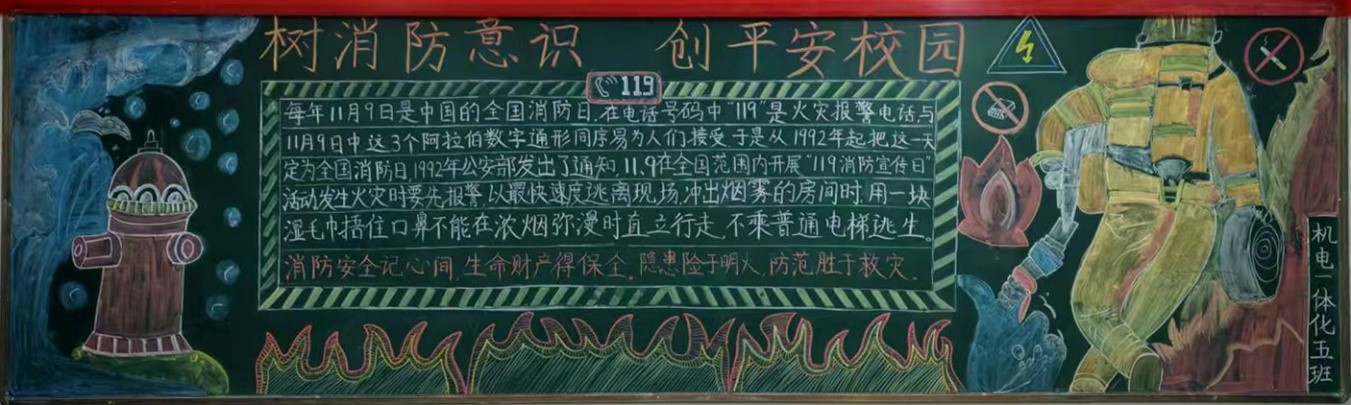 树消防意识 创平安校园
119
每年11月9日是中国的全国消防日.在电话号码中"119"是火灾报警电话与
11月9日中这3个阿拉伯数字通形同序易为人们接受于是从1992年起把这一天
定为全国消防日,1992年公安部发出了通知.11.9在全国范围内开展"119消防宣传日"
活动发生火灾时要先报警.以最快速度逃离现场,冲出烟雾的房间时.用一块
湿毛巾捂住口鼻不能在浓烟弥漫时直立行走.不乘普通电梯逃生。
消防安全记心间,生命财产得保全.隐患险于明火,防范胜于救灾.
机电一体化五班